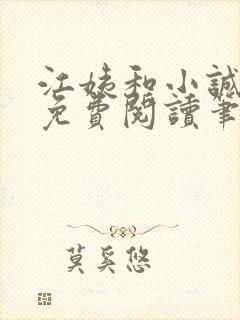 江姨和小誠
免費閱讀筆
莫奚悠